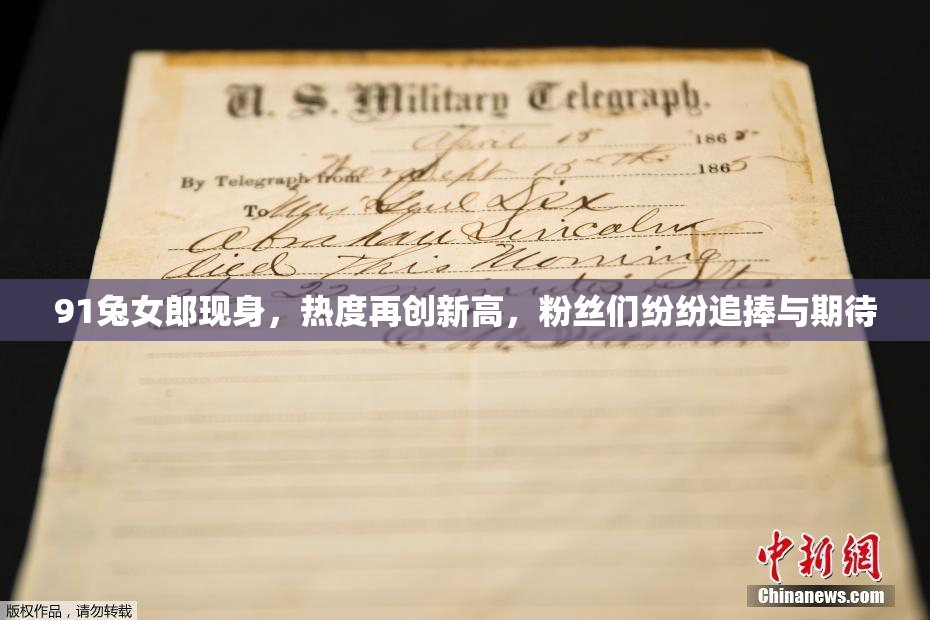 U. S. Military Telegraph.
April 15 1865
By Telegraph from War Dept 15th 1865
To Maj Genl Dix
Abraham Lincoln
died This Morning
at 22 minutes after
91兔女郎现身，热度再创新高，粉丝们纷纷追捧与期待
E. M. Stanton
中新网
Chinanews.com
版权作品，请勿转载